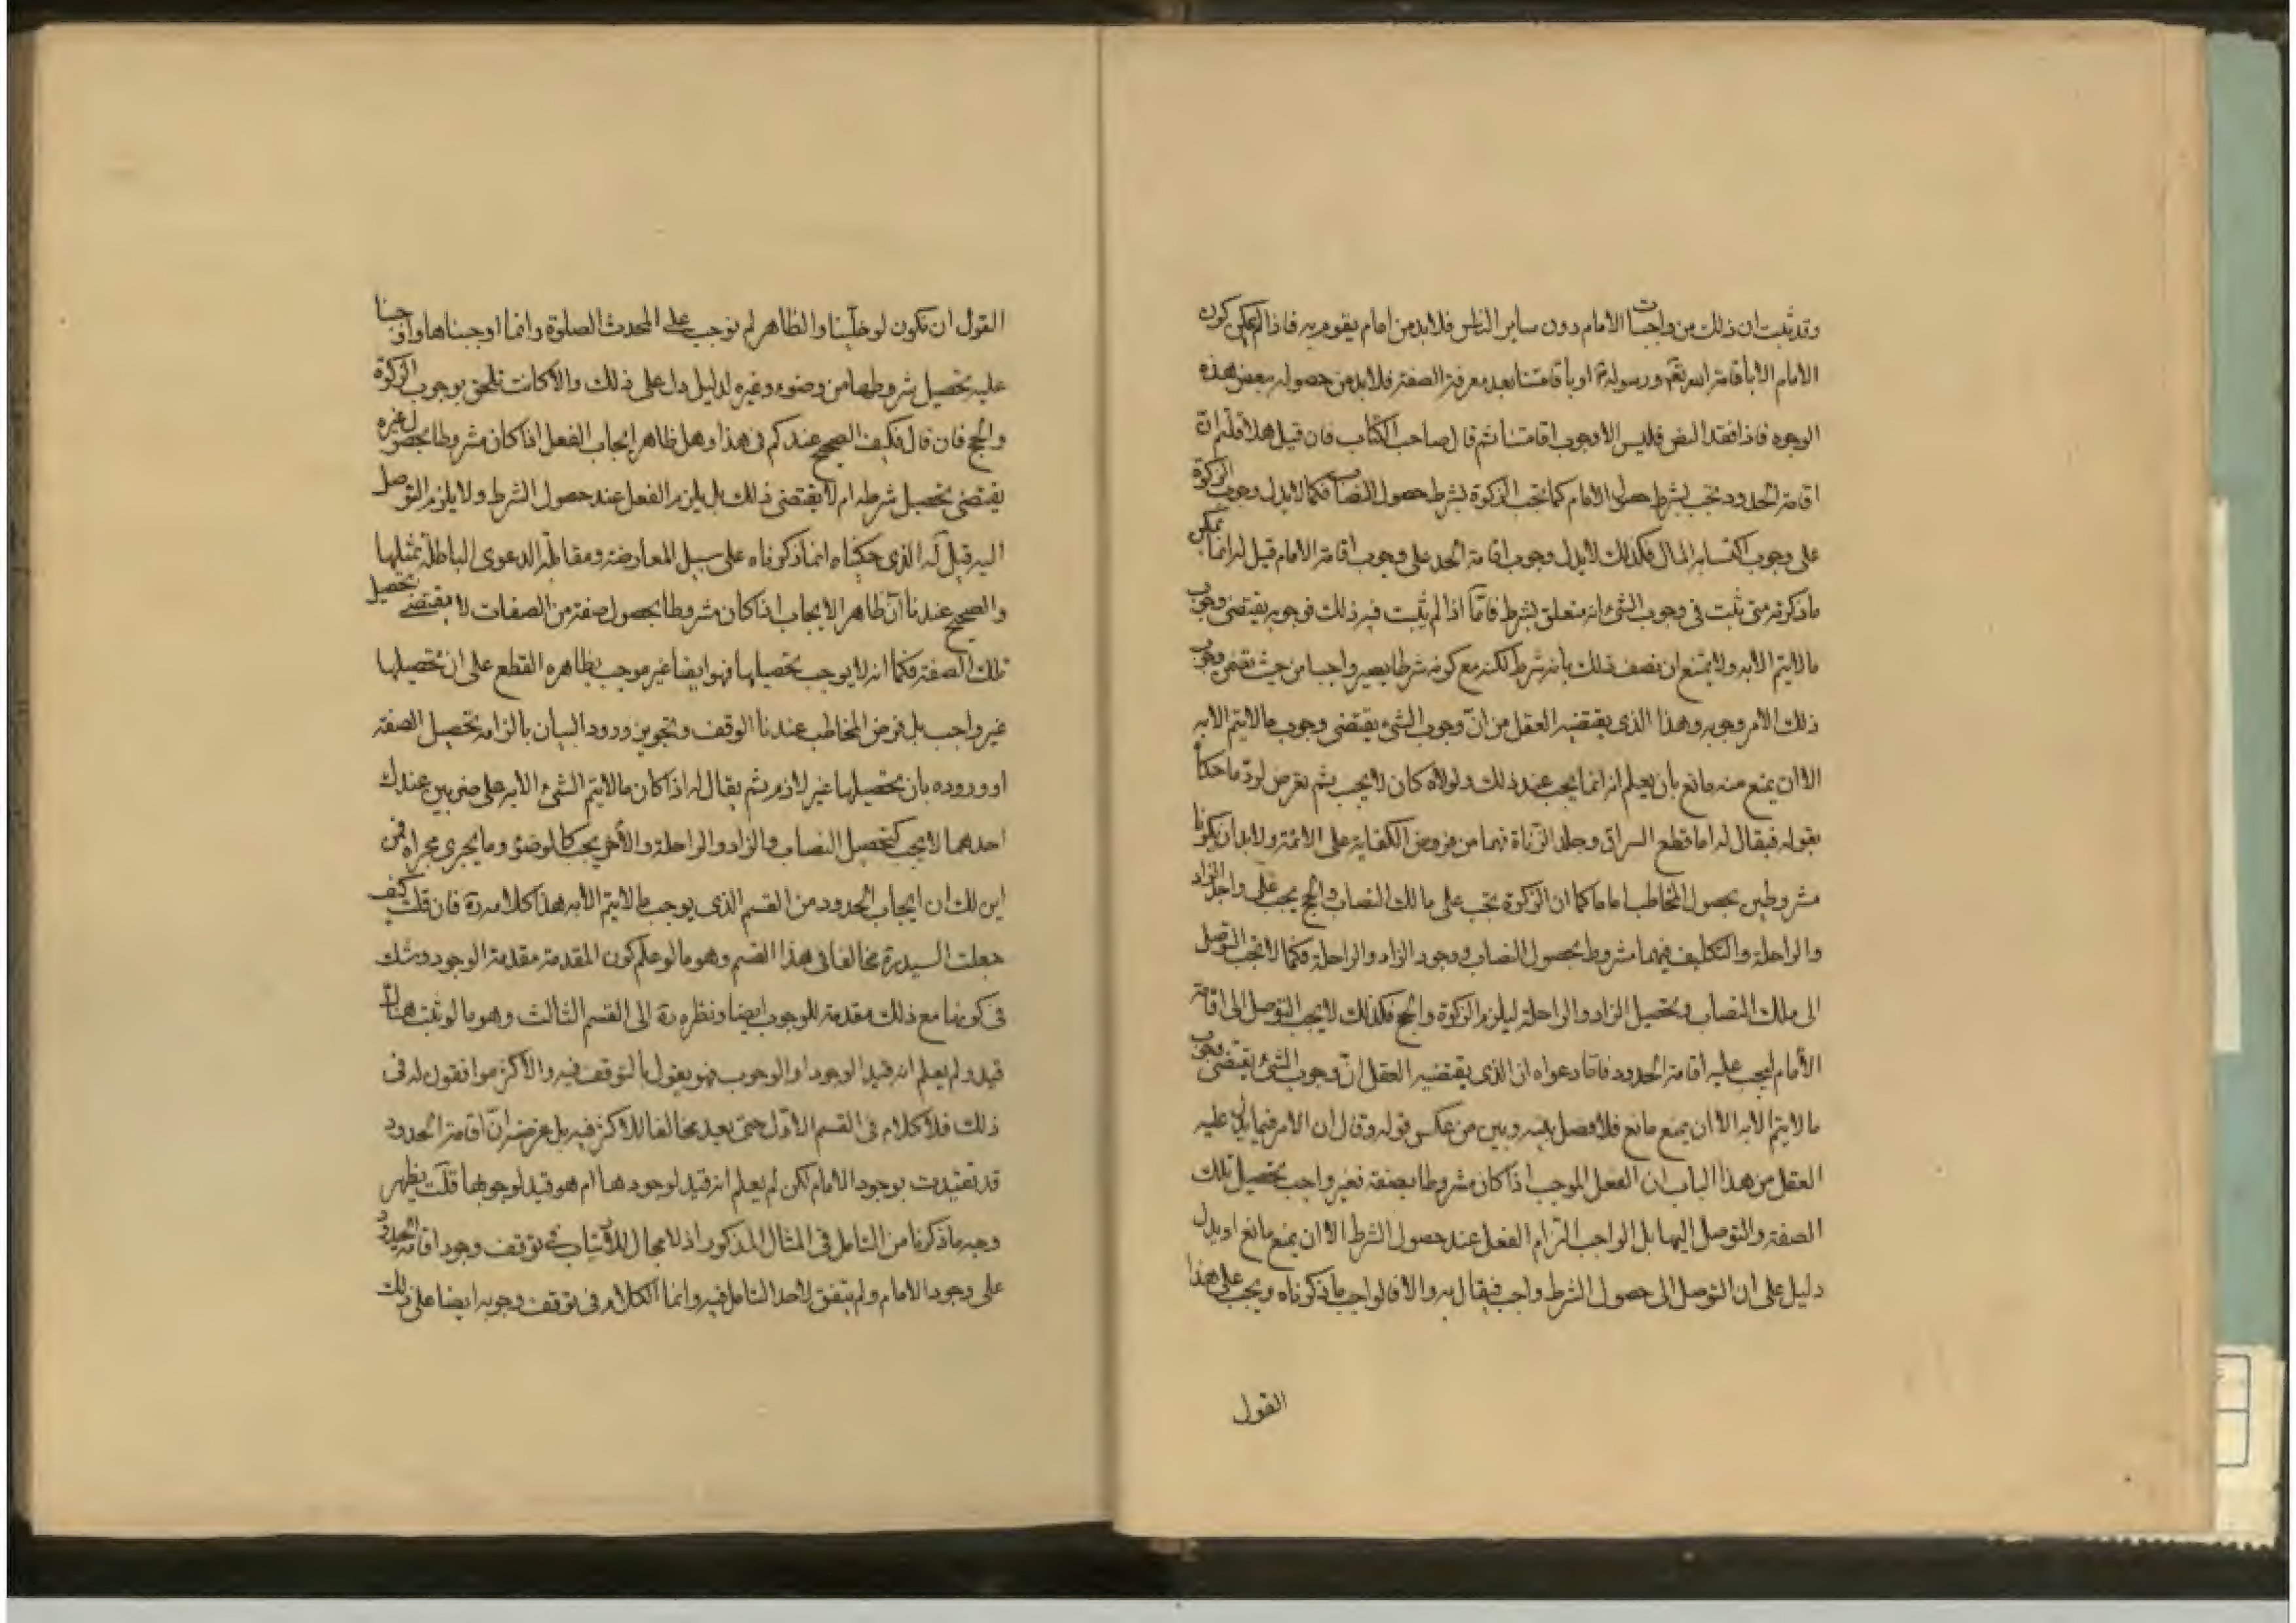 وقد ثبت ان ذلك من واجبات الامام دون ساير الناس فلا بد من امام يقوم به فاذا لم يمكن كون
الامام الا باقامة الله تعالى ورسوله او باقامتنا بعد معرفة الصفة فلا بد من حصوله ببعض هذه
الوجوه فاذا فقد البعض فليس الا وجوب اقامتنا ثم قال صاحب الكتاب فان قيل هلا قلتم ان
اقامة الحدود تجب بشرط حصول الامام كما تجب الزكوة بشرط حصول النصاب فكما لا يدل وجوب الزكوة
على وجوب اكتساب المال فكذلك لا يدل وجوب اقامة الحد على وجوب اقامة الامام قيل له انما يمكن
ما ذكرته متى ثبت فى وجوب الشئ انه متعلق بشرط فامّا اذا لم يثبت فيه ذلك فوجوبه يقتضى وجوب
ما لا يتم الا به ولا يمتنع ان نصف ذلك بانه شرط لكنه مع كونه شرطا يصير واجبا من حيث يقتضى وجوب
ذلك الامر وجوبه وهذا الذى يقتضيه العقل من انّ وجوب الشئ يقتضى وجوب ما لا يتم الا به
الا ان يمنع منه مانع بان يعلم انه انما يجب عند ذلك ولولاه كان لا يجب ثم تعرض لردّ ما حكاه
بقوله فيقال له اما قطع السراق وجلد الزناة فهما من فروض الكفاية على الائمة ولا بد ان يكونا
مشروطين بحصول المخاطب اماما كما ان الزكوة تجب على مالك النصاب والحج يجب على واجد الزاد
والراحلة والتكليف فيهما مشروط بحصول النصاب ووجود الزاد والراحلة فكما لا تجب التوصل
الى ملك النصاب وتحصيل الزاد والراحلة ليلزم الزكوة والحج فكذلك لا يجب التوصل الى اقامة
الأمام ليجب عليه اقامة الحدود فامّا دعواه ان الذى يقتضيه العقل انّ وجوب الشئ يقتضى وجوب
ما لا يتم الا به الا ان يمنع مانع فلا فصل بينه وبين من عكس قوله وقال ان الامر فيما يدل عليه
العقل من هذا الباب ان الفعل الموجب اذا كان مشروطا بصفة فغير واجب تحصيل تلك
الصفة والتوصل اليها بل الواجب التزام الفعل عند حصول الشرط الا ان يمنع مانع او يدل
دليل على ان التوصل الى حصول الشرط واجب فيقال به والا فالواجب ما ذكرناه ويجب على هذا
القول
القول ان نكون لو خلّينا والظاهر لم نوجب على المحدث الصلوة وانما اوجبناها واوجبنا
عليه تحصيل شروطها من وضوء وغيره لدليل دل على ذلك والا كانت تلحق بوجوب الزكوة
والحج فان قال فكيف الصحيح عندكم فى هذا وهل ظاهر ايجاب الفعل اذا كان مشروطا بحصول غيره
يقتضى تحصيل شرطه ام لا يقتضى ذلك بل يلزم الفعل عند حصول الشرط ولا يلزم التوصل
اليه قيل له الذى حكيناه انما ذكرناه على سبيل المعارضة ومقابلة الدعوى الباطلة بمثلها
والصحيح عندنا انّ ظاهر الايجاب اذا كان مشروطا بحصول صفة من الصفات لا يقتضى تحصيل
تلك الصفة فكما انه لا يوجب تحصيلها فهو ايضا غير موجب بظاهره القطع على ان تحصيلها
غير واجب بل فرض المخاطب عندنا الوقف وتجويز ورود البيان بالزامه تحصيل الصفة
او وروده بان تحصيلها غير لازم ثم يقال له اذا كان ما لا يتم الشئ الا به على ضربين عندك
احدهما لا يجب كتحصيل النصاب والزاد والراحلة والأخر يجب كالوضوء وما يجرى مجراه فمن
اين لك ان ايجاب الحدود من القسم الذى يوجب ما لا يتم الا به هذا كلامه ره فان قلت كيف
جعلت السيد ره مخالفا فى هذا القسم وهو ما لو علم كون المقدمة مقدمة الوجود وشك
فى كونها مع ذلك مقدمة للوجوب ايضا ونظره ره الى القسم الثالث وهو ما لو ثبت هناك
قيد ولم يعلم انه قيد الوجود او الوجوب فهو يقول بالتوقف فيه والاكثر موافقون له فى
ذلك فلا كلام فى القسم الاوّل حتى يعد مخالفا للاكثر فيه بل غرضه انّ اقامة الحدود
قد تقيدت بوجود الامام لكن لم يعلم انه قيد لوجودها ام هو قيد لوجوبها قلت يظهر
وجه ما ذكرنا من التامل فى المثال المذكور اذ لا مجال للارتياب فى توقف وجود اقامة الحدود
على وجود الامام ولم يتفق لاحد التامل فيه وانما الكلام فى توقف وجوبه ايضا على ذلك